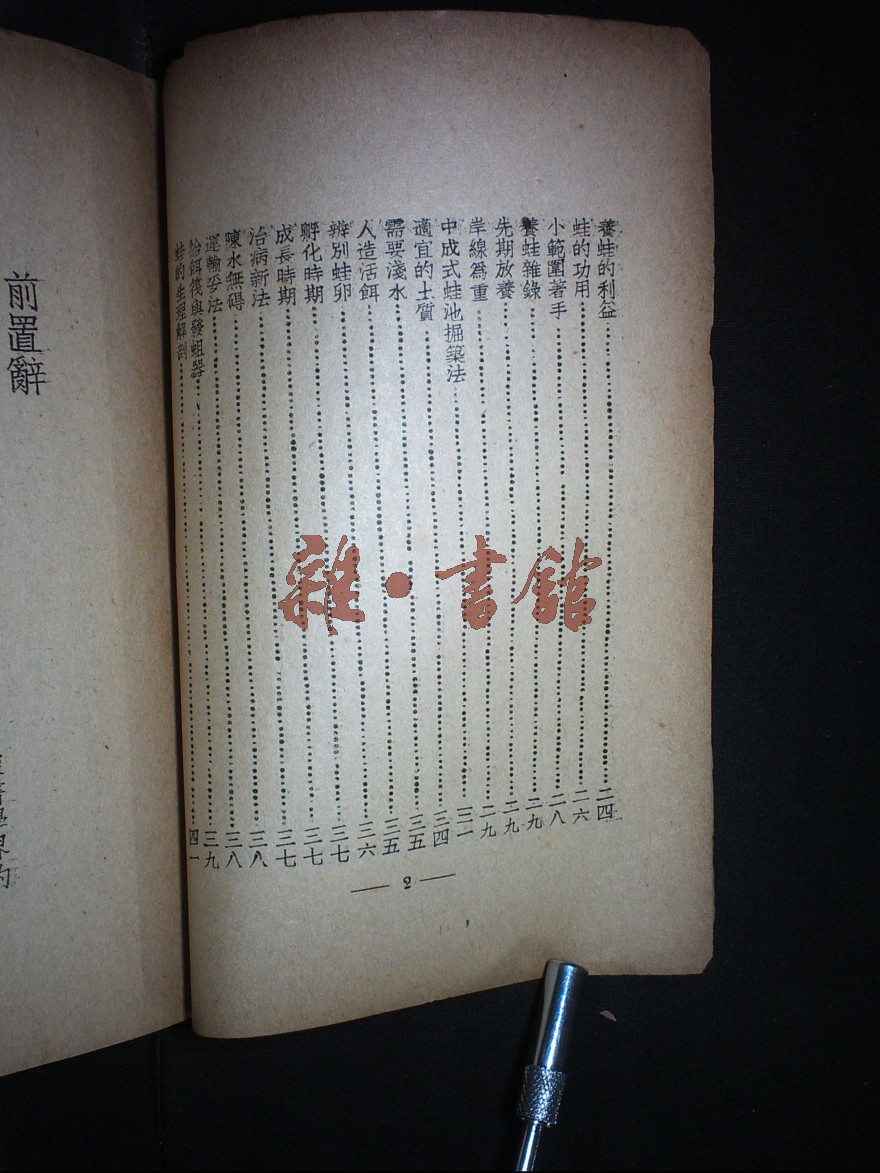 養蛙的利益……二四
蛙的功用……二六
小範圍著手……二八
養蛙雜錄……二九
先期放養……二九
岸線爲重……二九
中成式蛙池掘築法……三一
適宜的土質……三四
需要淺水……三五
人造活餌……三五
辨別蛙卵……三六
孵化時期……三七
成長時期……三七
治病新法……三七
陳水無碍……三八
運輸妥法……三八
給餌筏與發蛆器……三九
蛙的生理解剖……四一
— 2 —
雜·書館
前置辭